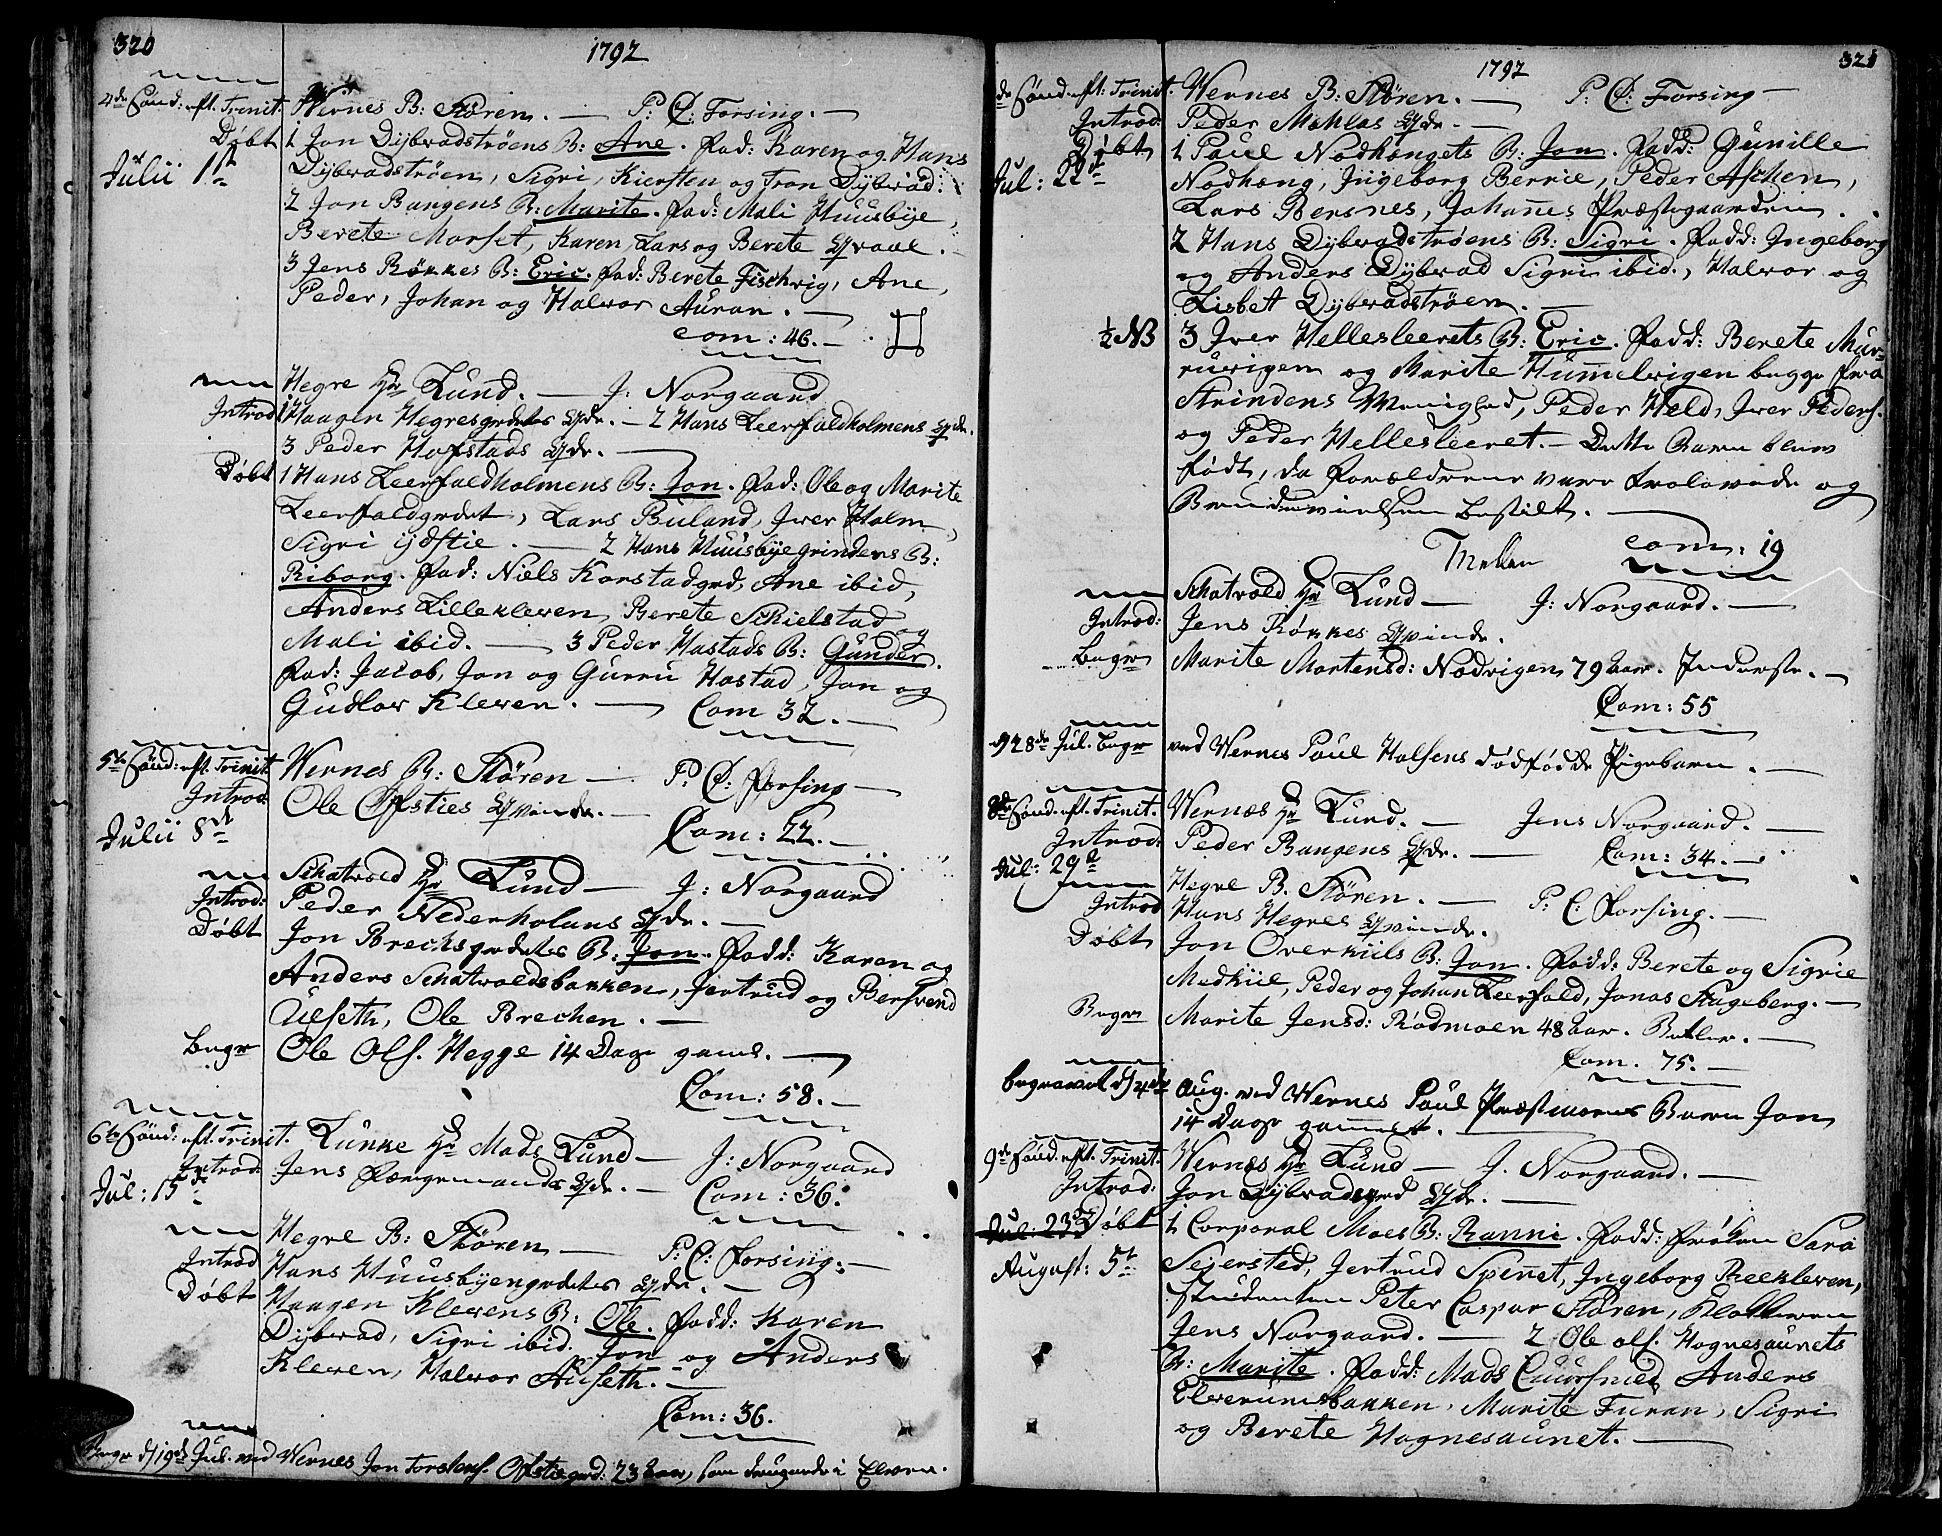 320
1792
4de Sönd: eft. Trinit. Wernes B: Stören. — P: Ø: Forsing. —
Døbt 1 Jon Dybvadstrøens B: Ane. Fad: Karen og Hans
Julii 1te Dybvadstrøen, Sigri, Kiersten og Tron Dybvad:
2 Jon Bangens B: Marite. Fad: Mali Huusbye,
Berete Morset, Karen, Lars og Berete Qvaal.
3 Jens Røkkes B: Eric. Fad: Berete Fischvig, Ane,
Peder, Johan og Halvor Auran. —
Com: 46. —
Hegre Hr Lund. — J: Norgaard
Introd: 1 Haagen Hegresgrdets Qde. — 2 Hans Leerfaldholmens Qde.
3 Peder Hofstads Qde. —
Døbt 1 Hans Leerfaldholmens B: Jon. Fad: Ole og Marite
Leerfaldgrdet, Lars Buland, Iver Holm,
Sigri ijdstie. — 2 Hans Huusbyegrindens B:
Riborg. Fad: Niels Korstadgrd, Ane ibid,
Anders Lillekleven, Berete Schielstad og
Mali ibid. — 3 Peder Hastads B: Gunder.
Fad: Jacob, Jon og Gurru Hastad, Jon og
Gudlov Kleven. — Com 32. —
5te Sönd: eft. Trinit. Wernes B: Stören — P: Ø: Forsing —
Introd: Ole Øfsties Qvinde. —
Julii 8de Com: 22. —
Schatvold Hr Lund — J: Norgaard
Introd: Peder Nederholans Qde. —
Døbt Jon Brechsgrdets B: Jon. Fadd: Karen og
Anders Schatvoldsbakken, Jertrud og Bersvend
Aufseth, Ole Brechen. —
Begr Ole Ols. Hegge 14 Dage gaml. —
Com: 58. —
6te Sönd: eft. Trinit. Lunke Hr Mads Lund — J: Norgaard
Introd: Jens Færgemands Qde. —
Jul: 15de Com: 36.
Hegre B: Stören — P: Ø: Forsing. —
Introd Hans Huusbyengrdets Qde. —
Døbt Haagen Klevens B: Ole. Fadd: Karen
Dybvad, Sigri ibid. Jon og Anders
Kleven, Halvor Aufseth. —
Com: 36.
Begr d/19de Jul. ved Wernes Jon Torstens. Øfstiegrd: 23 Aar, som druknede i Elven.
1792
321
de Sönd: eft: Trinit. Wernes B: Stören. — P: Ø: Forsing —
Introd: Peder Mæhlas Qde. —
Døbt 1 Paul Nodhøngets B: Jon. Fadd: Gunille
Jul: 22de Nodhøng, Ingeborg Berrie, Peder Aschen,
Lars Bersnes, Johanes Præstegaarden.
2 Hans Dybvadstrøens B: Sigri. Fadd: Ingeborg
og Anders Dybvad Sigri ibid., Halvor og
Lisbet Dybvadstrøen. —
1/2 NB 3 Iver Hellesleerets B: Eric. Fadd: Berete Mur-
ruvigen og Marite Humelvigen begge fra
Strindens Menighed, Peder Weld, Iver Peders.
og Peder Hellesleeret. — Dette Barn blev
født, da Forældrene vare trolovede og
Brudevielsen bestilt. —
Com: 19
Schatvold Hr Lund — J: Norgaard. —
Introd: Jens Røkkes Qvinde.
Begr Marite Mortensd: Nodvigen 79 Aar. Inderste. —
Com: 55
d/28de Jul. Begr ved Wernes Paul Halsens dødfødde Pigebarn. —
8de Sönd. eft. Trinit. Wernæs Hr Lund. — Jens Norgaard. —
Introd: Peder Bangens Qde. — Com: 34. —
Jul: 29de Hegre B. Stören. — P: C: Forsing. —
Introd Hans Hegres Qvinde.
Døbt Jon Overkiils B: Jon. Fadd: Berete og Sigrie
Medkiil, Peder og Johan Leerfald, Jonas Stugeberg. —
Begr Marite Jensd: Rødmoen 48 Aar. Betler. —
Com. 75. —
begravet d/4de Aug. ved Wernes Paul Præstmoens Barn Jon
14 Dage gammel. —
9de Sönd. eft. Trinit. Wernæs Hr Lund — J. Norgaard. —
Introd. Jon Dybvadsgrd Qde. —
Jul: 23de Døbt 1 Corporal Moes B: Ranni. Fadd: Frøken Sara
August: 5te Sejersted, Jertrud Spenet, Ingeborg Reekleven,
Studenten Peter Caspar Stören, Klokkeren
Jens Norgaard. — 2 Ole Ols. Hognesaunets
B: Marite. Fadd: Mads Anders
Elverumsbakken, Marite Furan, Sigri
og Berete Hognesaunet. —